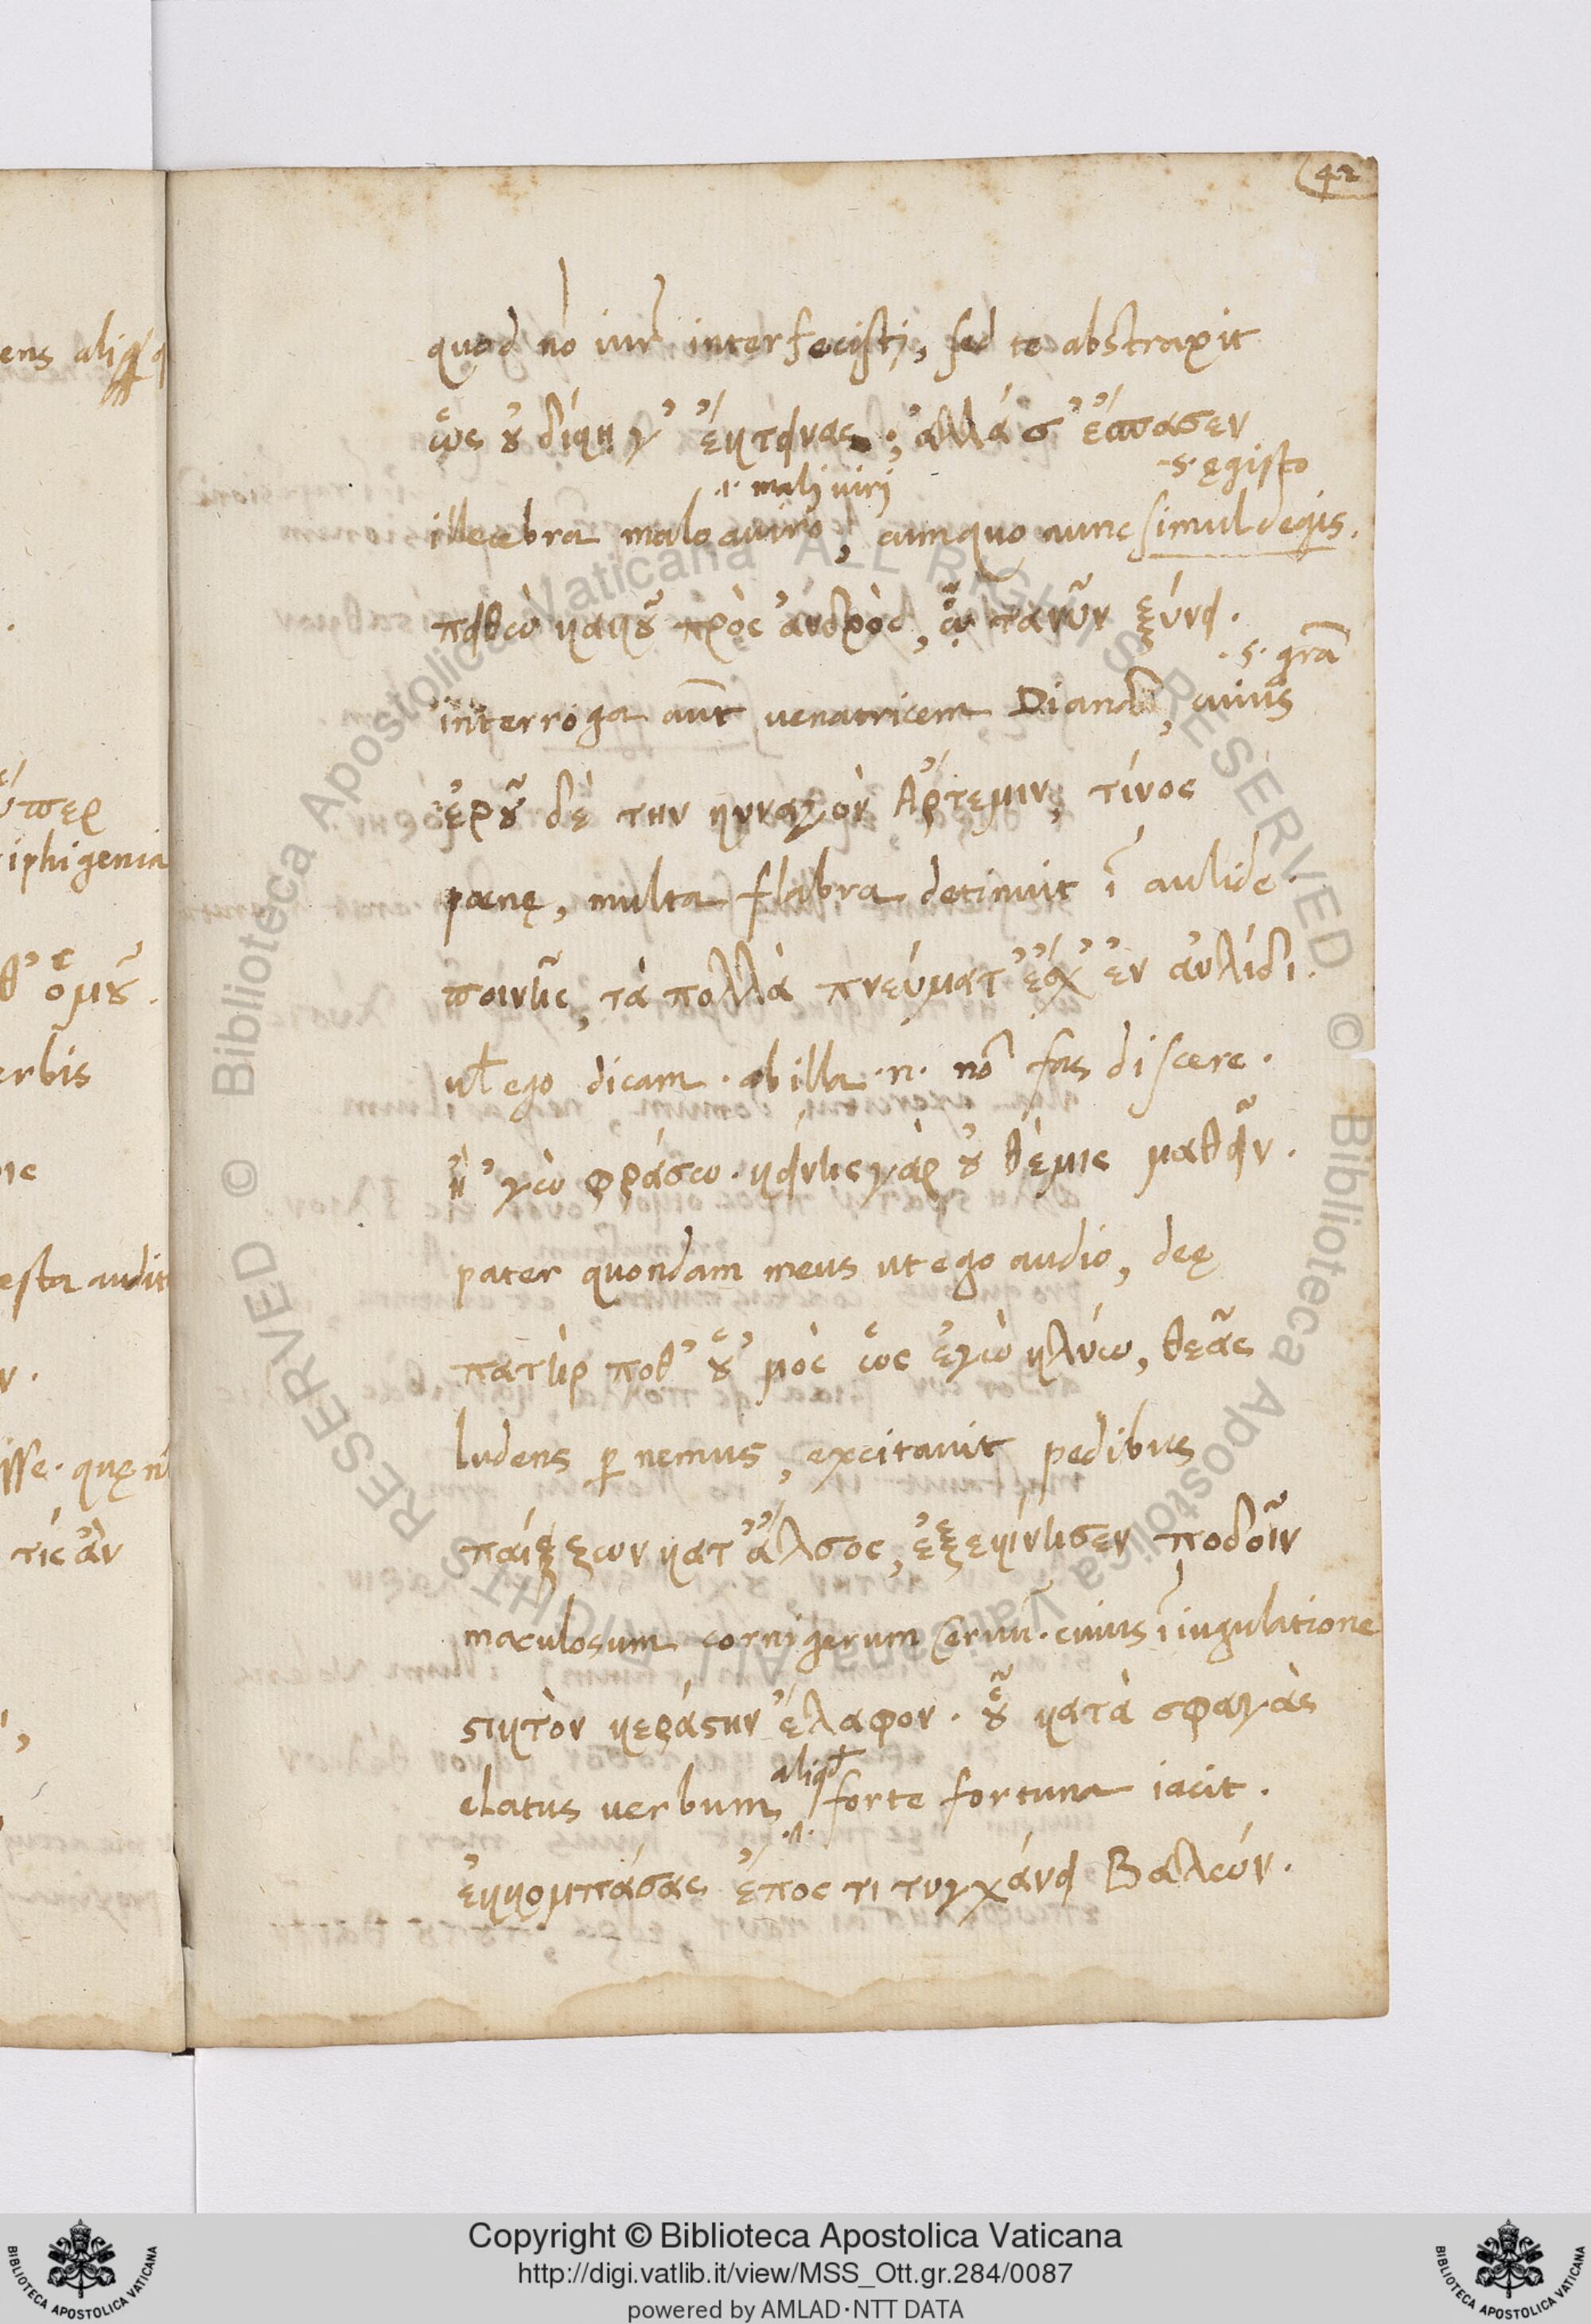 42
quod nō iur̄ interfecisti, sed te abstraxit
ὥς οὐ δίκη γ' ἔκτεινας, ἀλλά σ' ἔσπασεν
.i. mali viri
.s. ęgisto
illecebra malo a viro, cum quo nunc simul degis.
πειθὼ κακοῦ πρὸς ἀνδρὸς, ᾧ τανῦν ξύνει.
.s. grā
interroga aut̄ venatricem Dianam, cuius
ἐροῦ δὲ την κυναγὸν Ἄρτεμιν, τίνος
pœnę, multa flabra detinuit ī aulide.
ποινῆς, τὰ πολλὰ πνεύματ' ἔσχ' ἐν ἀυλίδι.
ul̄ ego dicam. ab illa .n. nō fas discere.
ἢ 'γὼ φράσω. κείνης γὰρ οὐ θέμις μαθεῖν.
pater quondam meus ut ego audio, deę
πατὴρ ποθ' οὑ' μὸς ὥς ἐγὼ κλύω, θεᾶς
ludens p nemus, excitavit pedibus
παίζων κατ' ἄλσος, ἐξεκίνησεν ποδοῖν
maculosum cornigerum cervū. cuius ī iugulatione
στικτὸν κεράστην ἔλαφον. οὗ κατὰ σφαγὰς
aliqd
elatus verbum forte fortuna iacit.
.n.
ἐκκομπάσας ἔπος τι τυγχάνει βαλών.
ens aliq
ύπερ
iphigenia
θ' ὁμοῦ.
erbis
esta audit
isse. quę n
τίς ἂν
Copyright © Biblioteca Apostolica Vaticana
http://digi.vatlib.it/view/MSS_Ott.gr.284/0087
powered by AMLAD·NTT DATA
BIBLIOTECA APOSTOLICA VATICANA
BIBLIOTECA APOSTOLICA VATICANA
© Biblioteca Apostolica Vaticana ALL RIGHTS RESERVED © Biblioteca Apostolica Vaticana ALL RIGHTS RESERVED